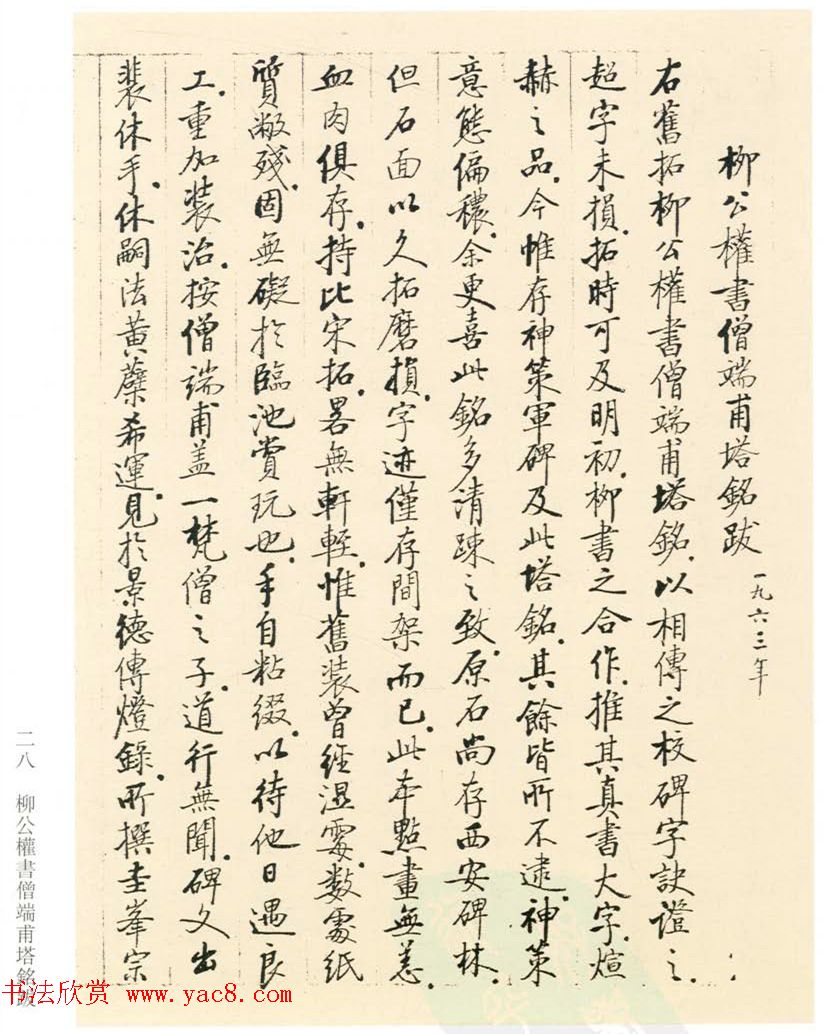 柳公權書僧端甫塔銘跋 一九六三年
右舊拓柳公權書僧端甫塔銘.以相傳之校碑字訣證之.
超字未損.拓時可及明初.柳書之合作.推其真書大字.煊
赫之品.今惟存神策軍碑及此塔銘.其餘皆所不逮.神策
意態偏穠.余更喜此銘多清疎之致.原石尚存西安碑林.
但石面以久拓磨損.字迹僅存間架而已.此本點畫無恙.
血肉俱存.持比宋拓.畧無軒輊.惟舊装曾經濕霉.数處紙
質敝殘.固無礙於臨池賞玩也.手自粘綴.以待他日遇良
工.重加装治.按僧端甫盖一梵僧之子.道行無聞.碑文出
裴休手.休嗣法黄蘗希運.見於景德傳燈錄.所撰圭峯宗
二八 柳公權書僧端甫塔銘跋
书法欣赏 www.yac8.com